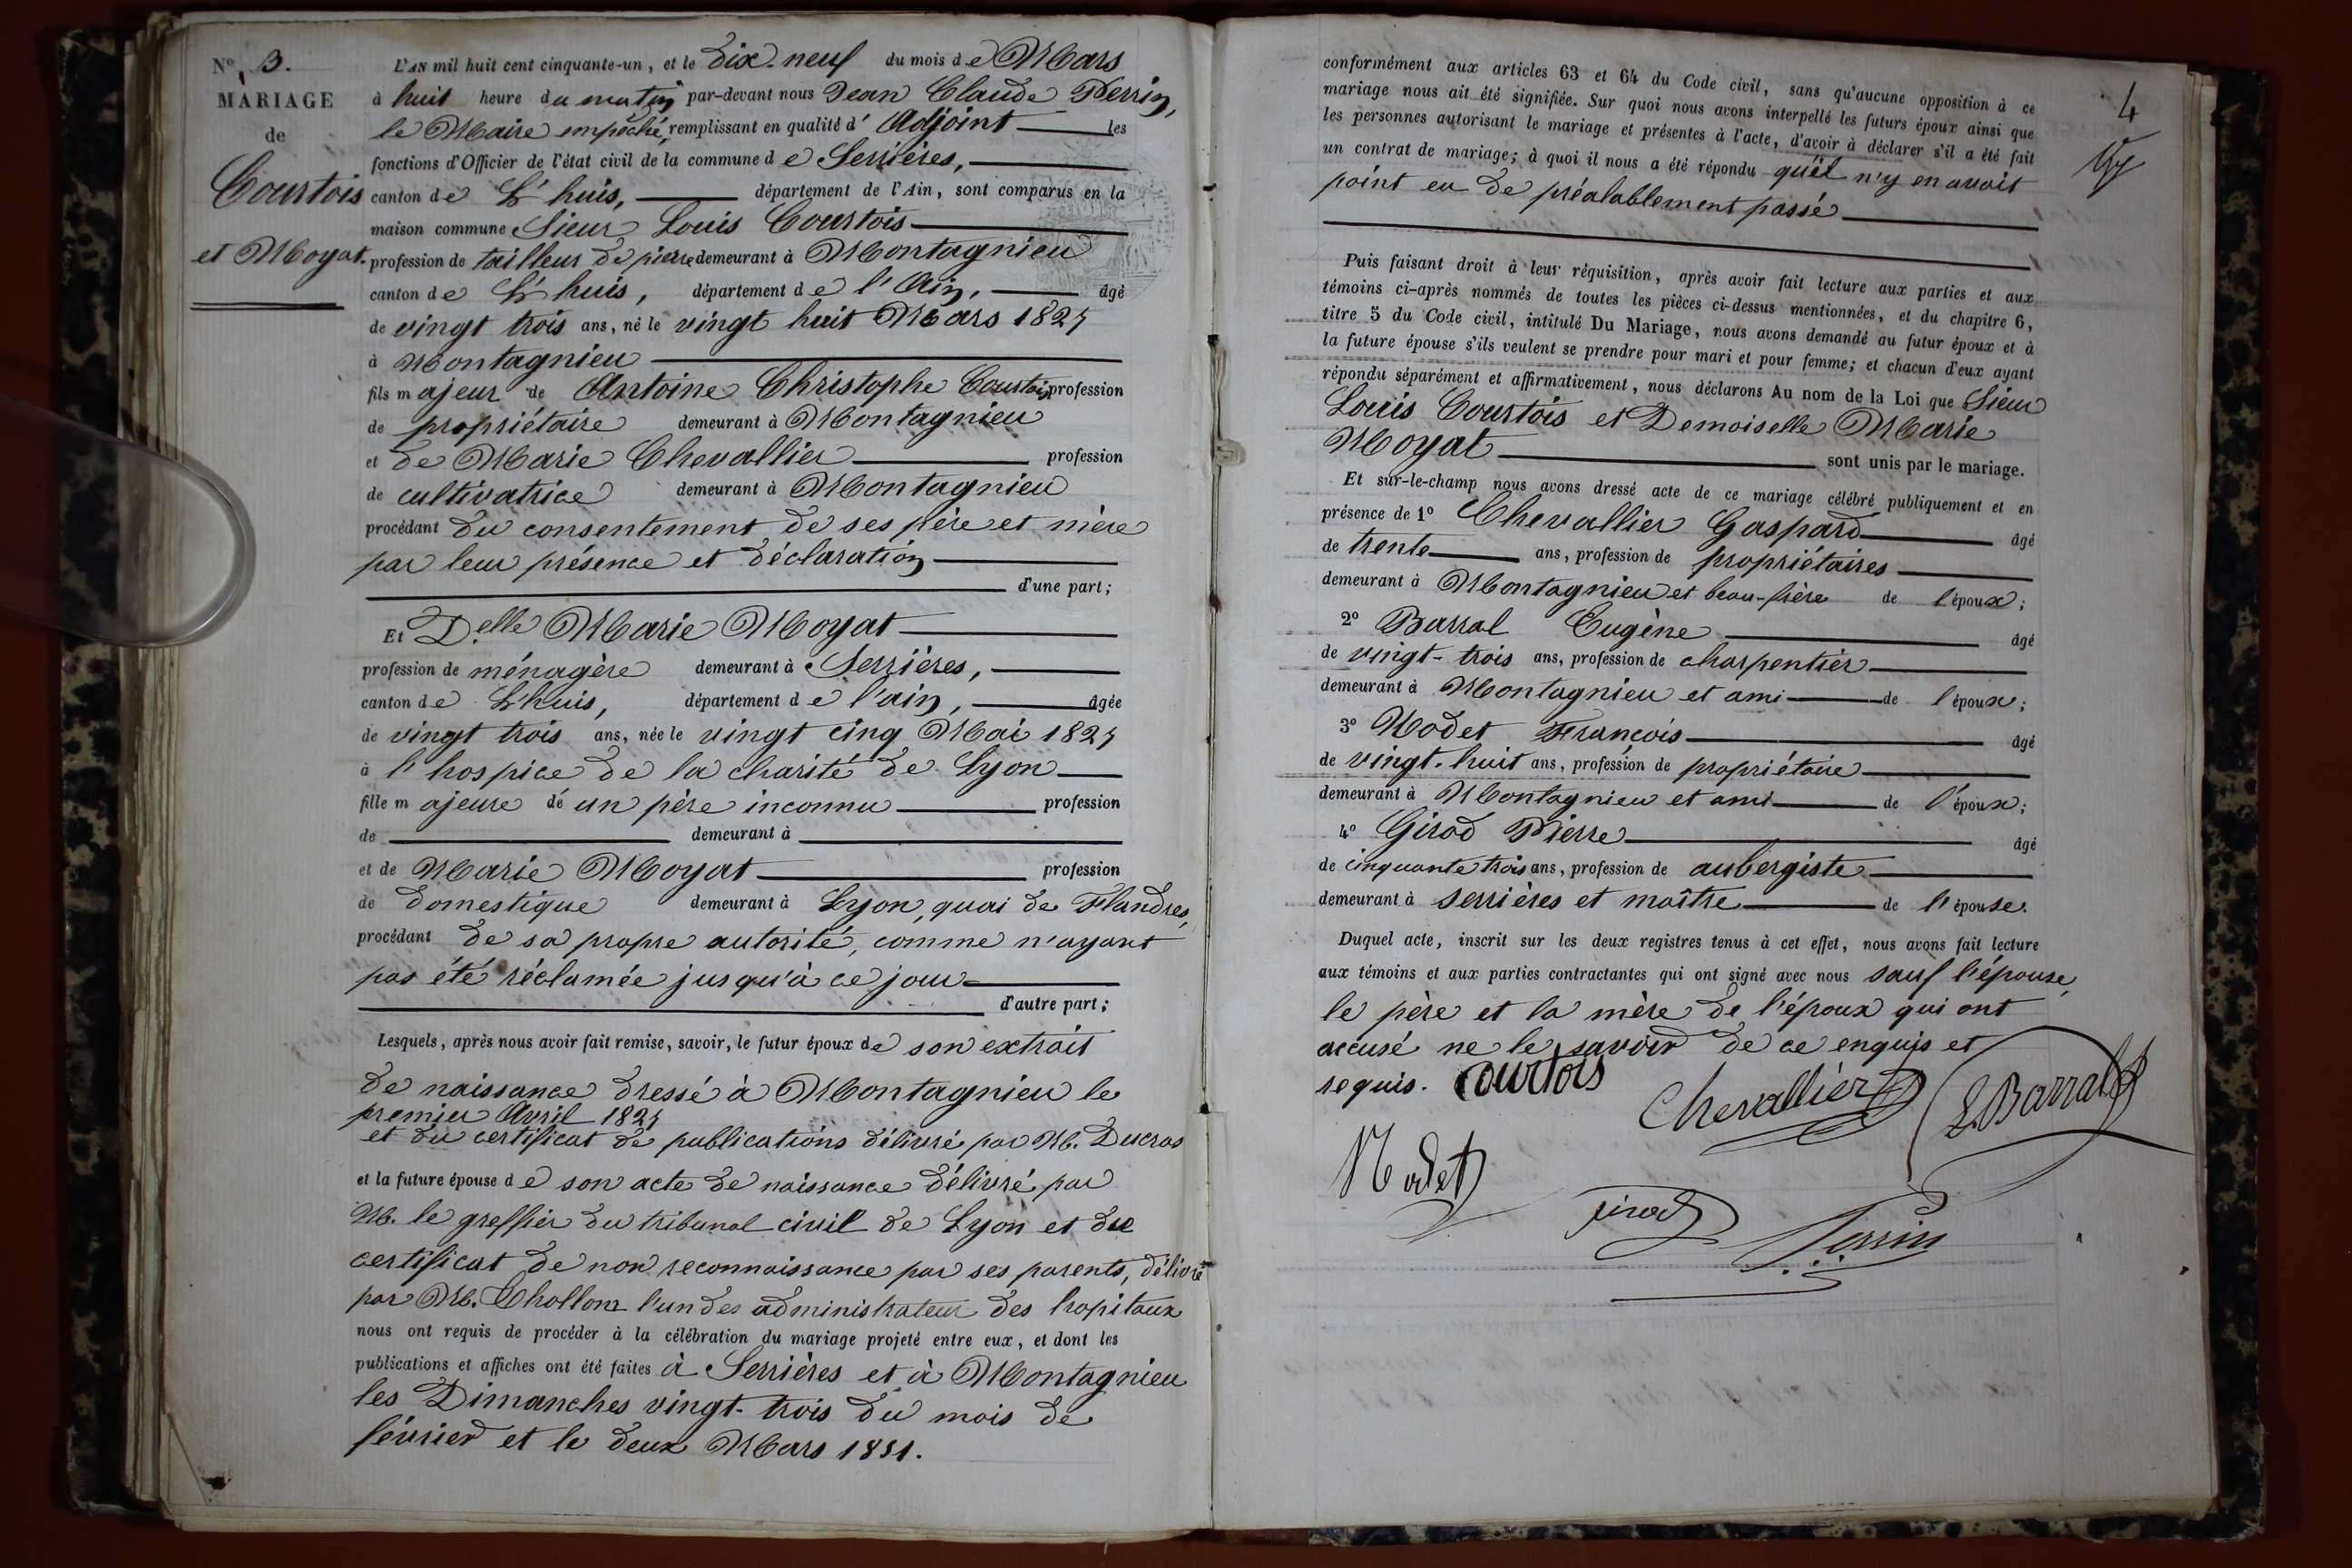 N° 3.
MARIAGE
de
Courtois
et Moyat.
L'AN mil huit cent cinquante-un, et le dix-neuf du mois de Mars
à huit heure du matin par-devant nous Jean Claude Perrin,
le Maire empêché, remplissant en qualité d'Adjoint les
fonctions d'Officier de l'état civil de la commune de Serrières,
canton de L'huis, département de l'Ain, sont comparus en la
maison commune Sieur Louis Courtois
profession de tailleur de pierre demeurant à Montagnieu
canton de L'huis, département de l'Ain, âgé
de vingt trois ans, né le vingt huit Mars 1827
à Montagnieu
fils majeur de Antoine Christophe Courtois profession
de propriétaire demeurant à Montagnieu
et de Marie Chevallier profession
de cultivatrice demeurant à Montagnieu
procédant du consentement de ses père et mère
par leur présence et déclaration
d'une part;
Et Delle Marie Moyat
profession de ménagère demeurant à Serrières,
canton de L'huis, département de l'ain, âgée
de vingt trois ans, née le vingt cinq Mai 1827
à l'hospice de la charité de Lyon
fille majeure de un père inconnu profession
de demeurant à
et de Marie Moyat profession
de domestique demeurant à Lyon, quai de Flandres,
procédant de sa propre autorité, comme n'ayant
pas été réclamée jusqu'à ce jour
d'autre part;
Lesquels, après nous avoir fait remise, savoir, le futur époux de son extrait
de naissance dressé à Montagnieu le
premier Avril 1827
et du certificat de publications délivré par M. Ducros
et la future épouse de son acte de naissance délivré par
M. le greffier du tribunal civil de Lyon et du
certificat de non reconnaissance par ses parents, délivré
par M. Chollon l'un des administrateur des hopitaux
nous ont requis de procéder à la célébration du mariage projeté entre eux, et dont les
publications et affiches ont été faites à Serrières et à Montagnieu
les Dimanches vingt-trois du mois de
février et le deux Mars 1851.
4
conformément aux articles 63 et 64 du Code civil, sans qu'aucune opposition à ce
mariage nous ait été signifiée. Sur quoi nous avons interpellé les futurs époux ainsi que
les personnes autorisant le mariage et présentes à l'acte, d'avoir à déclarer s'il a été fait
un contrat de mariage; à quoi il nous a été répondu qu'il n'y en avait
point eu de préalablement passé
Puis faisant droit à leur réquisition, après avoir fait lecture aux parties et aux
témoins ci-après nommés de toutes les pièces ci-dessus mentionnées, et du chapitre 6,
titre 5 du Code civil, intitulé Du Mariage, nous avons demandé au futur époux et à
la future épouse s'ils veulent se prendre pour mari et pour femme; et chacun d'eux ayant
répondu séparément et affirmativement, nous déclarons Au nom de la Loi que Sieur
Louis Courtois et Demoiselle Marie
Moyat sont unis par le mariage.
Et sur-le-champ nous avons dressé acte de ce mariage célébré publiquement et en
présence de 1° Chevallier Gaspard âgé
de trente ans, profession de propriétaires
demeurant à Montagnieu et beau-frère de l'époux;
2° Barral Eugène âgé
de vingt-trois ans, profession de charpentier
demeurant à Montagnieu et ami de l'époux;
3° Modet François âgé
de vingt-huit ans, profession de propriétaire
demeurant à Montagnieu et ami de l'époux;
4° Girod Pierre âgé
de cinquante trois ans, profession de aubergiste
demeurant à serrières et maître de l'épouse.
Duquel acte, inscrit sur les deux registres tenus à cet effet, nous avons fait lecture
aux témoins et aux parties contractantes qui ont signé avec nous sauf l'épouse,
le père et la mère de l'époux qui ont
accusé ne le savoir de ce enquis et
requis. Courtois
Chevallier
E. Barral
Modet
girod
Perrin